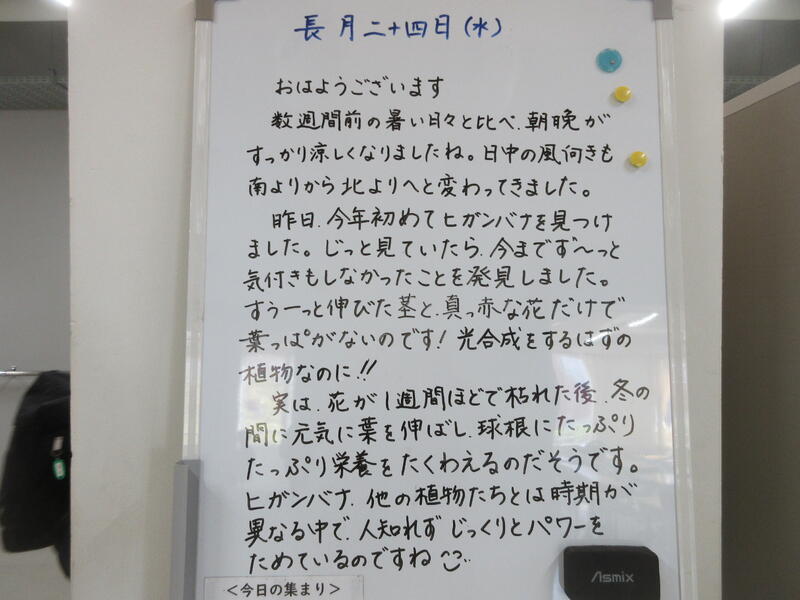 長月二十四日(水)
おはようございます
数週間前の暑い日々と比べ、朝晩が
すっかり涼しくなりましたね。日中の風向きも
南よりから北よりへと変わってきました。
昨日、今年初めてヒガンバナを見つけ
ました。じっと見ていたら、今までず〜っと
気付きもしなかったことを発見しました。
すぅーっと伸びた茎と、真っ赤な花だけで
葉っぱがないのです!光合成をするはずの
植物なのに!!
実は、花が1週間ほどで枯れた後、冬の
間に元気に葉を伸ばし、球根にたっぷり
たっぷり栄養をたくわえるのだそうです。
ヒガンバナ、他の植物たちとは時期が
異なる中で、人知れずじっくりとパワーを
ためているのですね
<今日の集まり>
Asmix